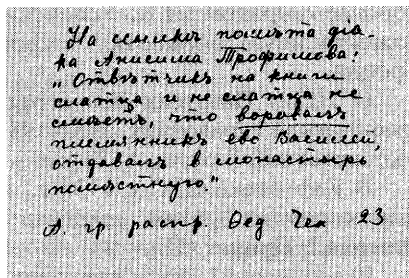 На сенникъ помѣта дiа-
ка Анисима Трофимова:
„Отвѣтчикъ на книги
слатца и не слатца не
смѣетъ, что воровалъ
племянникъ ево Василей,
отдавалъ в монастырь
помѣстную."
А. гр распр. Ѳед Чел 23